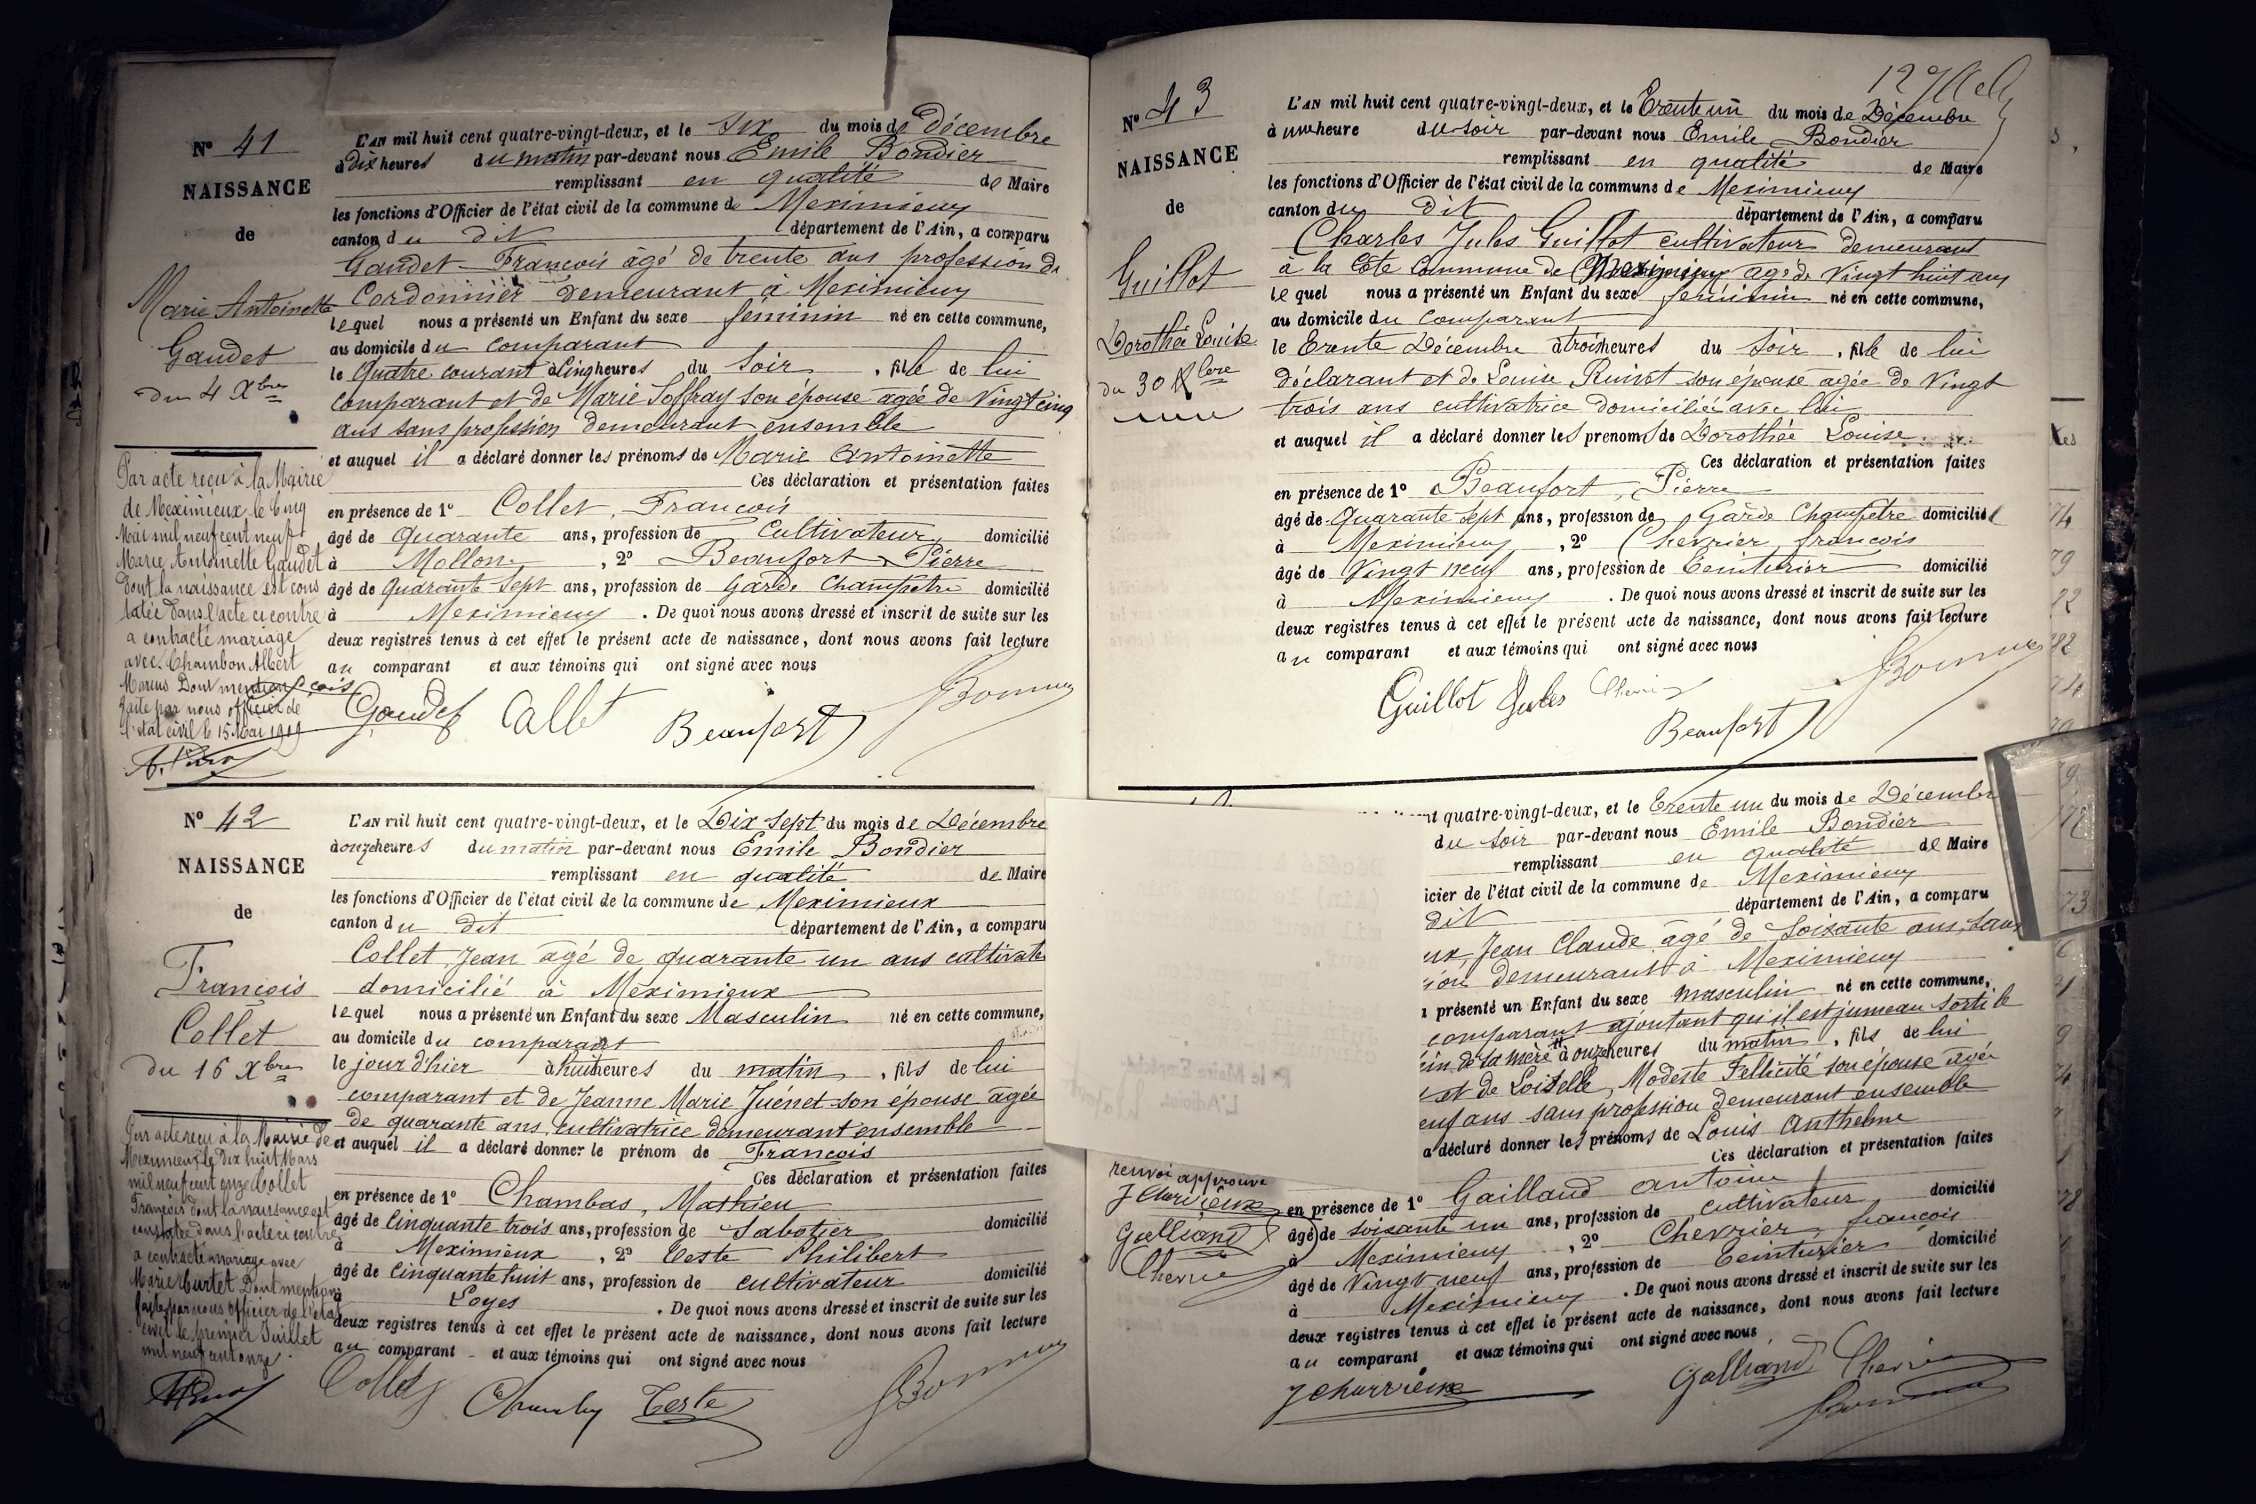 Nº 41
NAISSANCE
de
Marie Antoinette
Gaudet
du 4 Xbre
Par acte reçu à la Mairie
de Meximieux le cinq
Mai mil neuf cent neuf
Marie Antoinette Gaudet
dont la naissance est cons
tatée dans l'acte ci contre
a contracté mariage
avec Chambon Albert
Marius Dont mention
faite par nous officier de
l'état civil le 15 Mai 1909
L'AN mil huit cent quatre-vingt-deux, et le six du mois de Décembre
à dix heures du matin par-devant nous Emile Bondier
remplissant en qualité de Maire
les fonctions d'Officier de l'état civil de la commune de Meximieux
canton du dit département de l'Ain, a comparu
Gaudet François âgé de trente ans profession de
Cordonnier demeurant à Meximieux
lequel nous a présenté un Enfant du sexe féminin né en cette commune,
au domicile du comparant
le Quatre courant à cinq heures du soir, fille de lui
comparant et de Marie Soffray son épouse agée de Vingt cinq
ans sans profession demeurant ensemble
et auquel il a déclaré donner les prénoms de Marie Antoinette
Ces déclaration et présentation faites
en présence de 1º Collet, François
âgé de Quarante ans, profession de Cultivateur domicilié
à Mollon, 2º Beaufort Pierre
âgé de Quarante sept ans, profession de Garde Champêtre domicilié
à Meximieux. De quoi nous avons dressé et inscrit de suite sur les
deux registres tenus à cet effet le présent acte de naissance, dont nous avons fait lecture
au comparant et aux témoins qui ont signé avec nous
Gaudet Collet Beaufort
Nº 42
NAISSANCE
de
François
Collet
du 16 Xbre
Par acte reçu à la Mairie de
Meximieux le dix huit Mars
mil neuf cent onze Collet
François dont la naissance est
constatée dans l'acte ci contre
a contracté mariage avec
Marie Curtet Dont mention
faite par nous officier de l'état
civil le premier Juillet
mil neuf cent onze.
L'AN mil huit cent quatre-vingt-deux, et le Dix sept du mois de Décembre
à onze heures du matin par-devant nous Emile Bondier
remplissant en qualité de Maire
les fonctions d'Officier de l'état civil de la commune de Meximieux
canton du dit département de l'Ain, a comparu
Collet, Jean âgé de quarante un ans cultivate
domicilié à Meximieux
lequel nous a présenté un Enfant du sexe Masculin né en cette commune,
au domicile du comparant
le jour d'hier à huit heures du matin, fils de lui
comparant et de Jeanne Marie Juénet son épouse agée
de quarante ans, cultivatrice demeurant ensemble
et auquel il a déclaré donner le prénom de François
Ces déclaration et présentation faites
en présence de 1º Chambas, Mathieu
âgé de Cinquante trois ans, profession de Sabotier domicilié
à Meximieux, 2º Teste Philibert
âgé de Cinquante huit ans, profession de cultivateur domicilié
à Loyes. De quoi nous avons dressé et inscrit de suite sur les
deux registres tenus à cet effet le présent acte de naissance, dont nous avons fait lecture
au comparant et aux témoins qui ont signé avec nous
Collet Teste
Nº 43
NAISSANCE
de
Guillot
Dorothée Louise
du 30 Xbre
L'AN mil huit cent quatre-vingt-deux, et le Trente un du mois de Décembre
à une heure du soir par-devant nous Emile Bondier
remplissant en qualité de Maire
les fonctions d'Officier de l'état civil de la commune de Meximieux
canton du dit département de l'Ain, a comparu
Charles Jules Guillot cultivateur demeurant
à la Côte Commune de Meximieux agé de Vingt huit ans
lequel nous a présenté un Enfant du sexe féminin né en cette commune,
au domicile du comparant
le Trente Décembre à trois heures du soir, fille de lui
déclarant et de Louise Ruivet son épouse agée de Vingt
trois ans cultivatrice domiciliée avec lui
et auquel il a déclaré donner les prenoms de Dorothée Louise
Ces déclaration et présentation faites
en présence de 1º Beaufort, Pierre
âgé de Quarante sept ans, profession de Garde Champêtre domicilié
à Meximieux, 2º Chevrier, françois
âgé de Vingt neuf ans, profession de Teinturier domicilié
à Meximieux. De quoi nous avons dressé et inscrit de suite sur les
deux registres tenus à cet effet le présent acte de naissance, dont nous avons fait lecture
au comparant et aux témoins qui ont signé avec nous
Guillot Jules
Beaufort
nt quatre-vingt-deux, et le Trente un du mois de Décembre
du soir par-devant nous Emile Bondier
remplissant en qualité de Maire
icier de l'état civil de la commune de Meximieux
dit département de l'Ain, a comparu
ux, Jean Claude âgé de Soixante ans, sans
ion demeurant à Meximieux
présenté un Enfant du sexe masculin né en cette commune,
comparant ajoutant qu'il est jumeau sorti le
ein de sa mère à onze heures du matin, fils de lui
et de Loiselle, Modeste Fellicité son épouse agée
euf ans sans profession demeurant ensemble
a déclaré donner les prénoms de Louis Anthelme
Ces déclaration et présentation faites
renvoi approuvé
J Charrieux
Galliand
en présence de 1º Gailland antoine
âgé de soixante un ans, profession de cultivateur domicilié
à Meximieux, 2º Chevrier, françois
âgé de Vingt neuf ans, profession de Teinturier domicilié
à Meximieux. De quoi nous avons dressé et inscrit de suite sur les
deux registres tenus à cet effet le présent acte de naissance, dont nous avons fait lecture
au comparant et aux témoins qui ont signé avec nous
J Charrieux Galliand